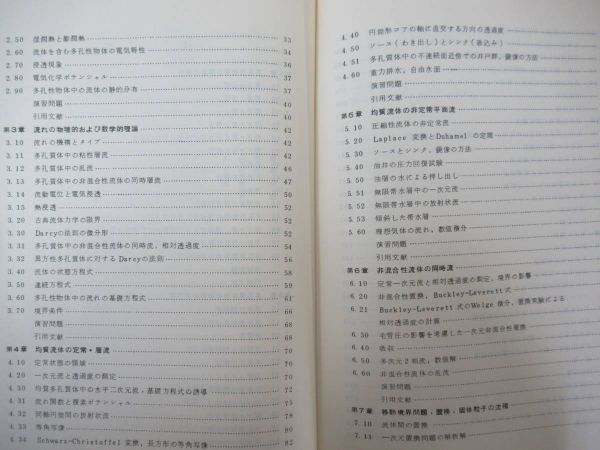 2.50 湿潤熱と膨潤熱 33
2.60 流体を含む多孔性物体の電気特性 34
2.70 浸透現象 36
2.80 電気化学ポテンシャル 37
2.90 多孔性物体中の流体の静的分布 37
演習問題 40
引用文献 40
第3章 流れの物理的および数学的理論 42
3.10 流れの機構とタイプ 42
3.11 多孔質体中の粘性層流 42
3.12 多孔質体中の乱流 46
3.13 多孔質体中の非混合性流体の同時層流 47
3.14 流動電位と電気浸透 50
3.15 熱浸透 52
3.20 古典流体力学の限界 52
3.30 Darcyの法則の微分形 52
3.31 多孔質体中の非混合性流体の同時流，相対透過度 54
3.32 異方性多孔質体に対するDarcyの法則 56
3.40 流体の状態方程式 58
3.50 連続方程式 59
3.60 多孔性物体中の流れの基礎方程式 61
3.70 境界条件 66
演習問題 68
引用文献 68
第4章 均質流体の定常・層流 70
4.10 定常状態の領域 70
4.20 一次元流と透過度の測定 70
4.30 均質多孔質体中の水平二次元流，基礎方程式の誘導 72
4.31 流れ関数と複素ポテンシャル 75
4.32 同軸円筒間の放射状流 78
4.33 等角写像 80
4.34 Schwarz-Christoffel 変換，長方形の等角写像 82
4.40 円筒形コアの軸に直交する方向の透過度
4.50 ソース（わき出し）とシンク（吸込み）
4.51 多孔質体中の不連続面近傍での井戸群，鏡像の方法
4.60 重力排水，自由水面
演習問題
引用文献
第5章 均質流体の非定常平面流
5.10 圧縮性流体の非定常流
5.20 Laplace 変換とDuhamel の定理
5.30 ソースとシンク，鏡像の方法
5.40 油井の圧力回復試験
5.50 油層の水による押し出し
5.51 無限帯水層中の一次元流
5.52 無限帯水層中の放射状流
5.53 傾斜した帯水層
5.60 理想気体の流れ，数値積分
演習問題
引用文献
第6章 非混合性流体の同時流
6.10 定常一次元流と相対透過度の測定，境界の影響
6.20 非混合性置換，Buckley-Leverett式
6.21 Buckley-Leverett 式のWelge 積分，置換実験による
相対透過度の計算
6.30 毛管圧の影響を考慮した一次元非混合性置換
6.40 吸収
6.50 多次元2相流，数値解
6.60 非混合性流体の乱流
演習問題
引用文献
第7章 移動境界問題，置換，固体粒子の沈積
7.10 流体間の置換
7.11 一次元置換問題の解析解